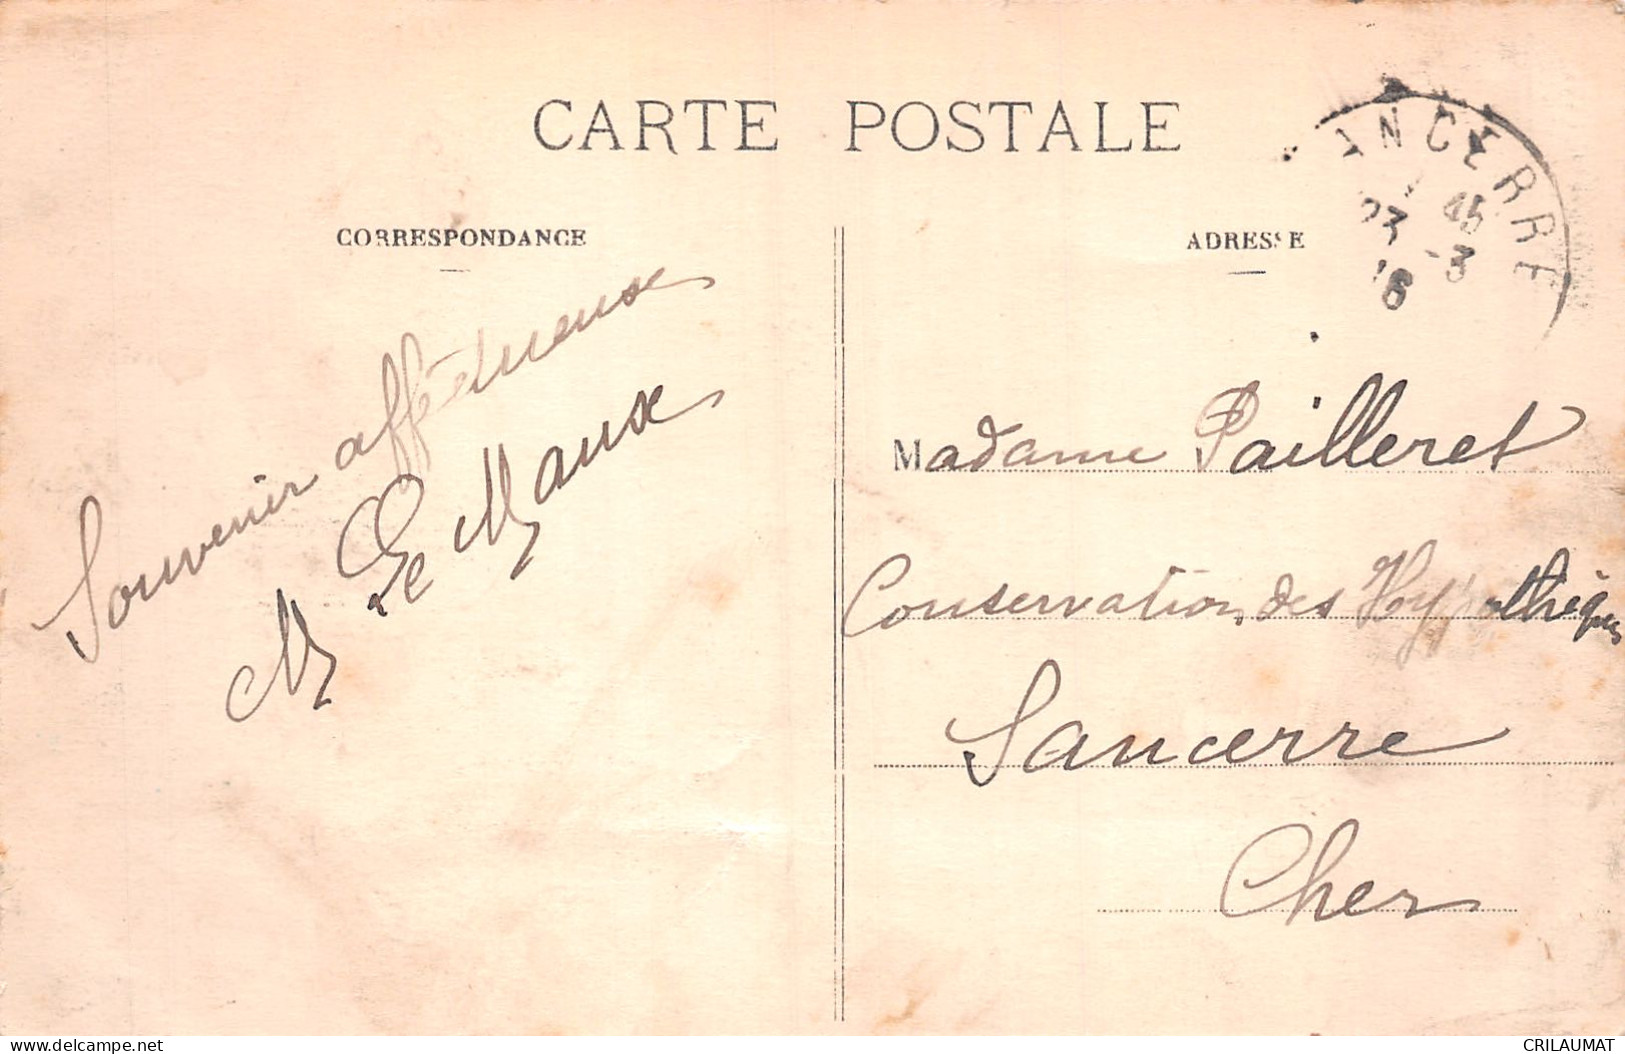 CARTE POSTALE
CORRESPONDANCE
ADRESSE
ANCERRE
45
23 -3
16
Souvenir affétueuse
M Le Maux
Madame Pailleret
Conservation des Hypothèques
Sancerre
Cher
www.delcampe.net
CRILAUMAT